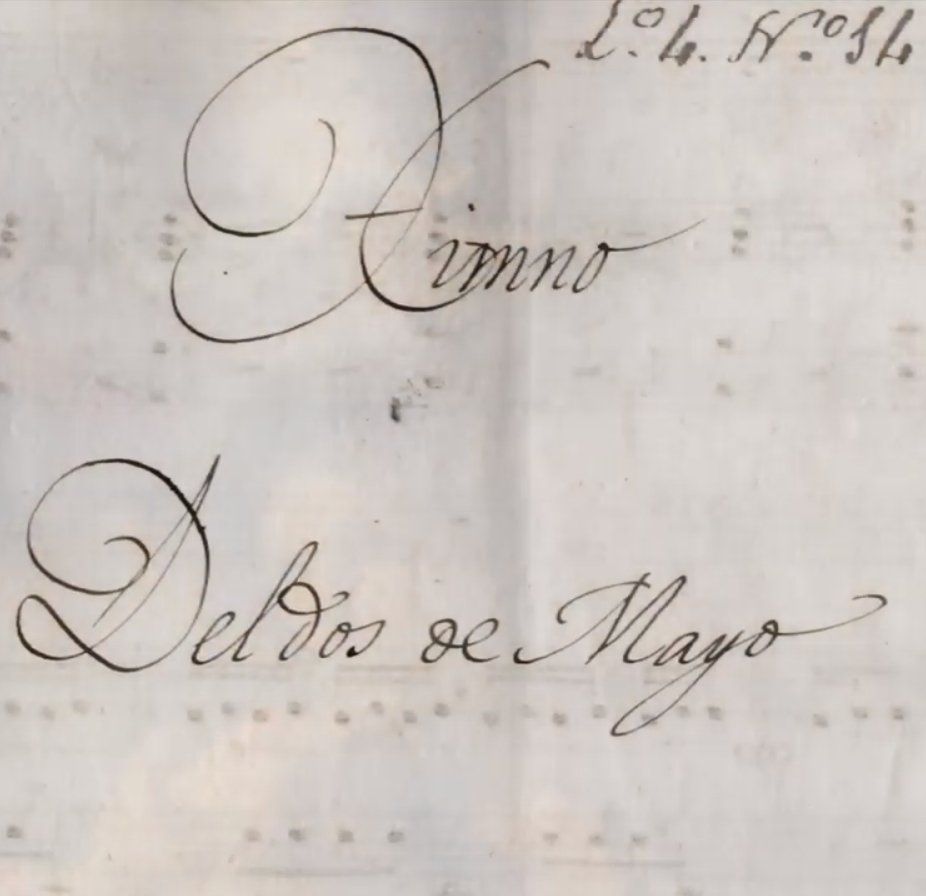 L.º 4. N.º 14
Himno
Del dos de Mayo